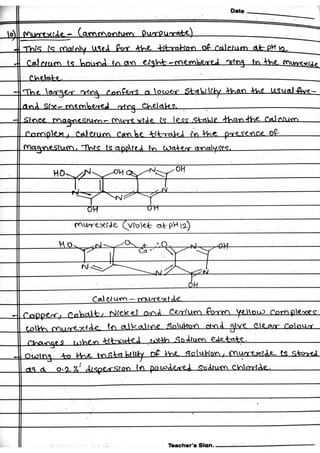 Date
10) Murexide - (ammonium purpurate)
- This is mainly used for the titration of calcium at pH 12.
Calcium is bound in an eight-membered ring in the murexide
Chelate.
- The larger ring confers a lower stability than the usual five-
and six-membered ring Chelats.
- Since magnesium-murexide is less stable than the calcium
Complex, Calcium can be titrated in the presence of
magnesium. This is applied in water analysis.
HO N OH O N OH
N N N
OH OH
murexide (violet at pH 12)
HO N O + O N OH
Ca
N N N
OH
Calcium - murexide
- Copper, Cobalt, Nickel and Cerium form yellow complexes
with murexide in alkaline solution and give clear colour
Changes when titrated with sodium edetate.
- Owing to the instability of the solution, murexide is stored
as a 0.2% dispersion in powdered sodium chloride.
Teacher's Sign.